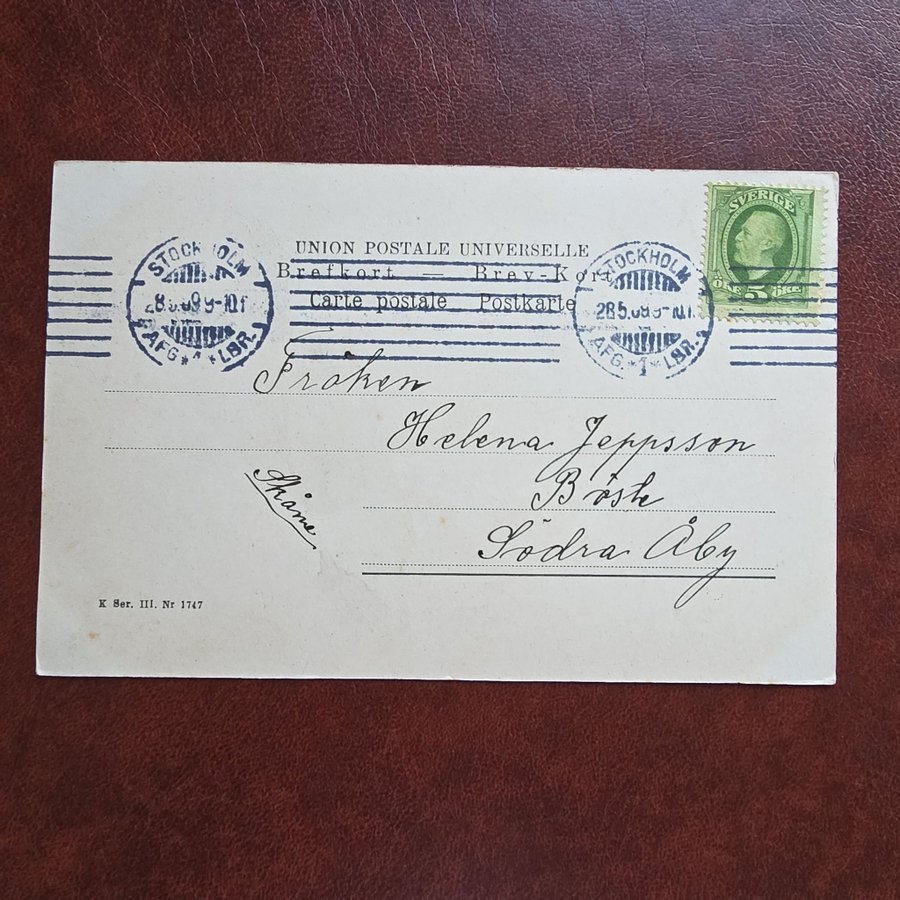 UNION POSTALE UNIVERSELLE
Brefkort — Brev-Kort
Carte postale Postkarte
SVERIGE
ÖRE 5 ÖRE
STOCKHOLM
AFG. 1 LBR.
STOCKHOLM
28.5.09 9-10.f
AFG. 1 LBR.
Fröken
Helena Jeppsson
Böste
Södra Åby
Skåne
K Ser. III. Nr 1747